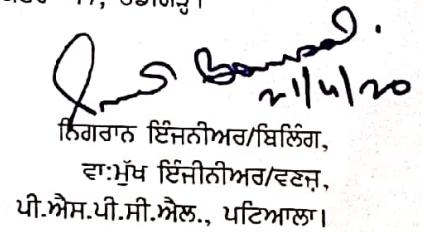 21/4/20
ਨਿਗਰਾਨ ਇੰਜਨੀਅਰ/ਬਿਲਿੰਗ,
ਵਾ:ਮੁੱਖ ਇੰਜੀਨੀਅਰ/ਵਣਜ਼,
ਪੀ.ਐਸ.ਪੀ.ਸੀ.ਐਲ., ਪਟਿਆਲਾ।